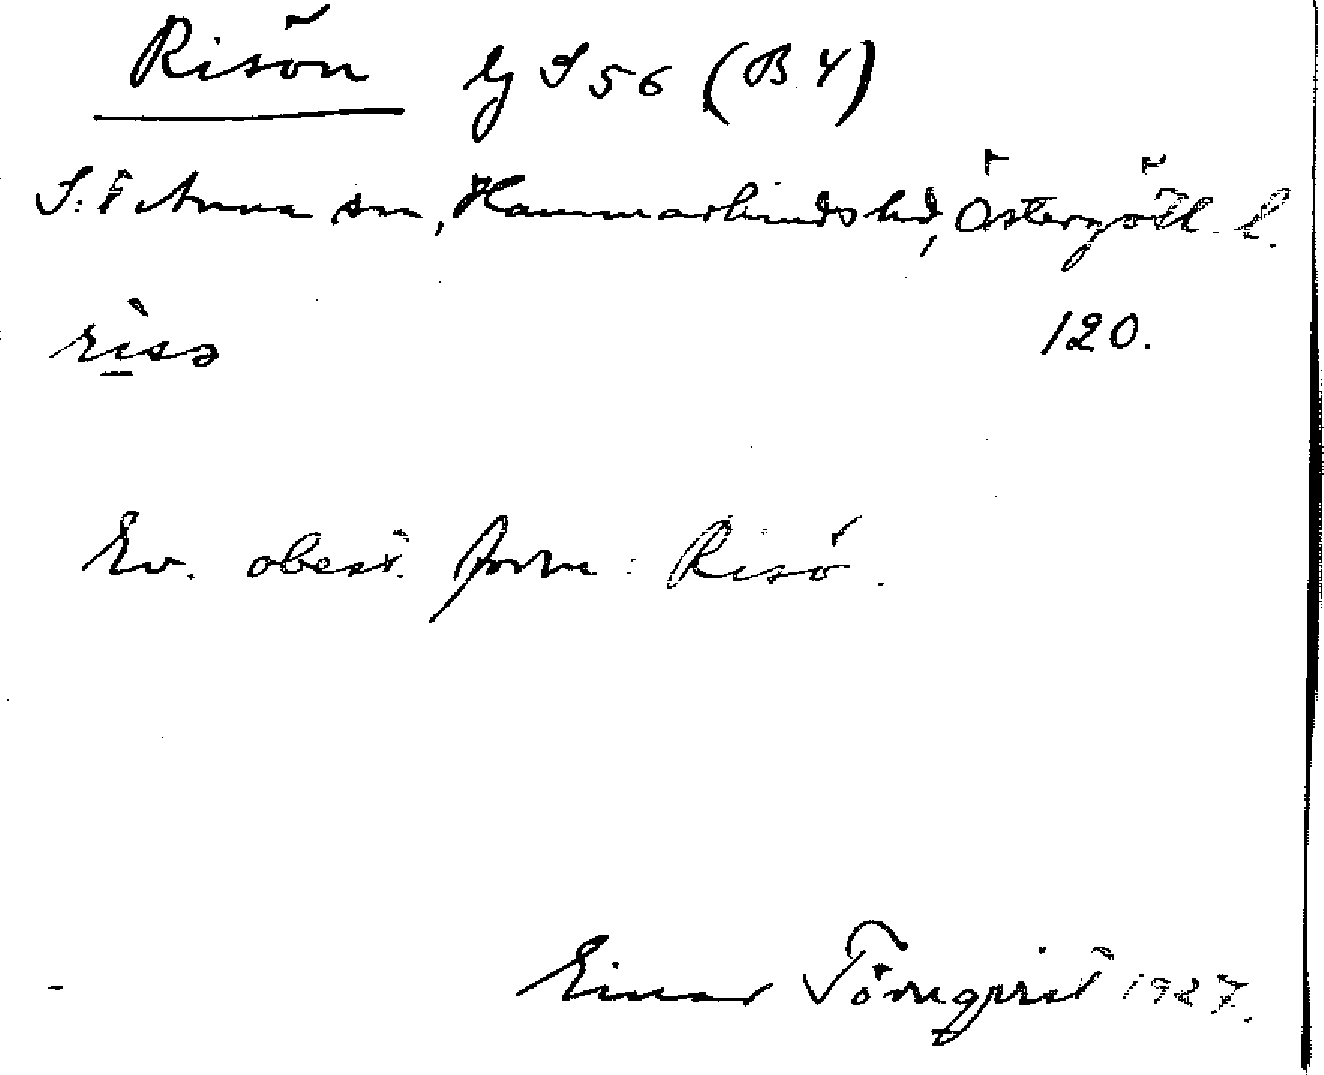 Risön lj S 56 (B 4)
S:t Anna sn, Hammarkinds hd, Östergötl. l.
rìsə 120.
Ev. obest. form: Risö.
Einar Törnqvist 1927.